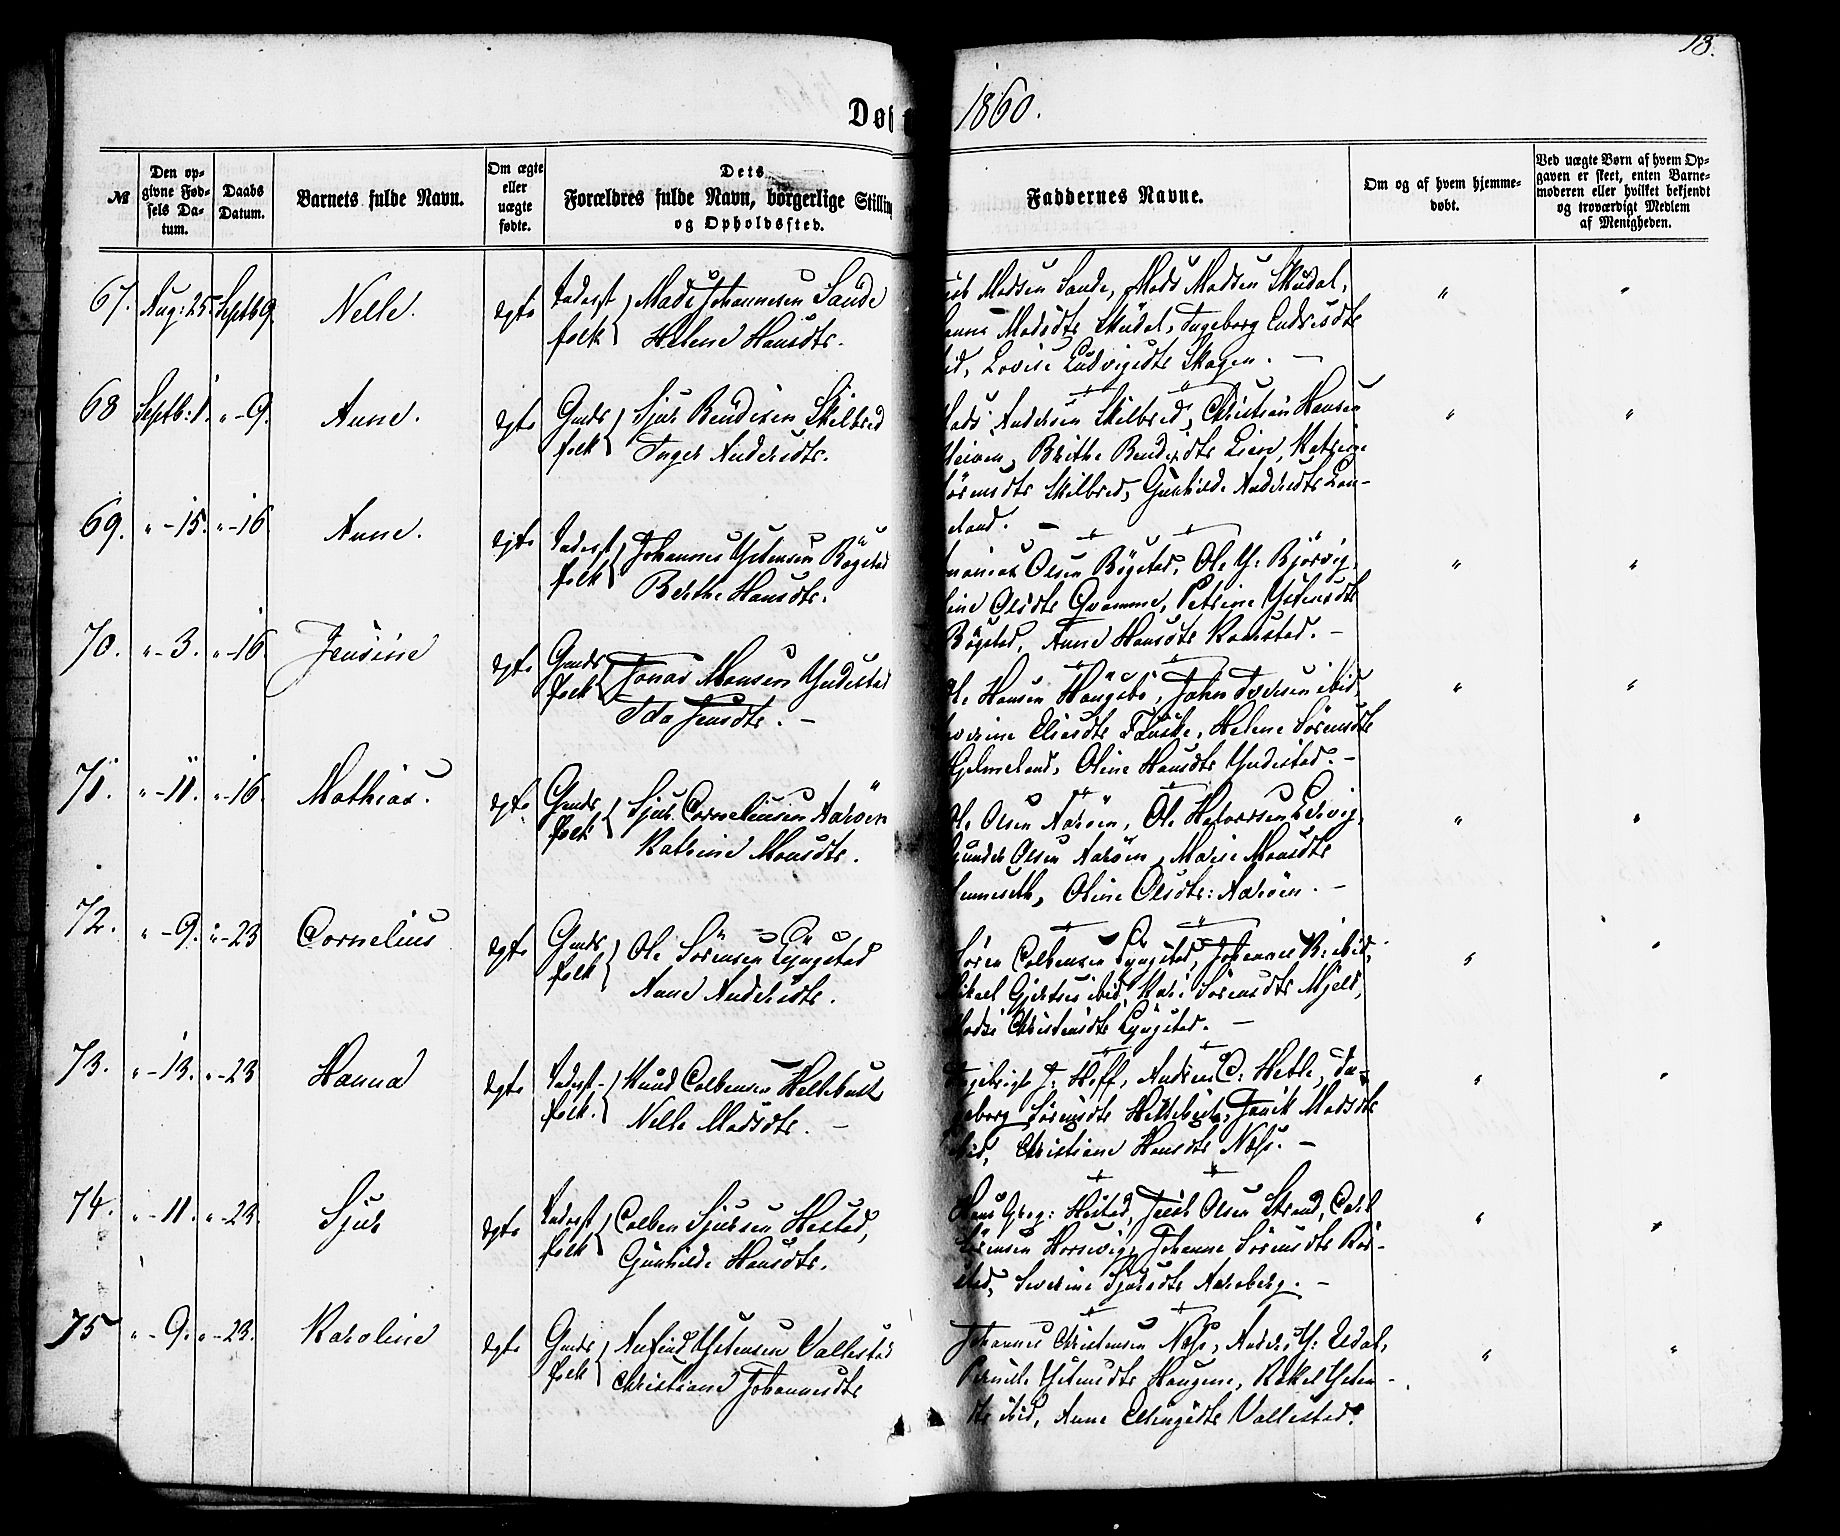 13.
Døb 1860.
№
Den op-
givne Fød-
sels Da-
tum.
Daabs
Datum.
Barnets fulde Navn.
Om ægte
eller
uægte
fødte.
Dets
Forældres fulde Navn, borgerlige Stilling
og Opholdssted.
Faddernes Navne.
Om og af hvem hjemme-
døbt.
Ved uægte Børn af hvem Op-
gaven er skeet, enten Barne-
moderen eller hvilket bekjendt
og troværdigt Medlem
af Menigheden.
67. Aug: 25. Septb 9. Nelle. ægte Inderst Mads Johannesen Sande
folk Helene Hansdtr.
Madsen Sande, Mads Madsen Skudal,
Madsdtr Skudal, Ingeborg Endresdtr
Lovise Ludvigsdtr Skagen. —
68 Septb: 1. " - 9. Anne. ægte Gmds Sjur Bendixen Skilbred
folk Inger Andersdtr.
Mads Andersen Skilbred, Christian Hansen
Brithe Bendixdtr Lien, Katrine
Sörensdtr Skilbred, Gunhilde Andersdtr Lan-
deland. —
69. " - 15. " - 16 Anne. ægte Inderst Johannes Ystensen Bögstad
folk Berthe Hansdtr.
Olsen Bögstad, Ole Y: Björvig,
Olsdtr Qvamme, Petrine Ystensdtr
Bögstad, Anne Hansdtr Ramstad. —
70. " - 3. " - 16. Jensine ægte Gmds Jonas Monsen Yndestad
folk Ida Jensdtr. —
Ole Hansen Haugebö, John ibid,
Severine Eliesdtr Flaske, Helene Sörensdtr
Hjelmeland, Oline Hansdtr Yndestad. —
71. " - 11. " - 16. Mathias. ægte Gmds Sjur Corneliusen Aaröen
folk Katrine Monsdtr.
Ole Olsen Aaröen, Ole Halvorsen Lervig,
Gunder Olsen Aaröen, Marie Monsdtr
Oline Olsdtr: Aaröen. —
72. " - 9. " - 23 Cornelius ægte Gmds Ole Sörensen Lyngstad
folk Anne Andersdtr.
Sören Colbensen Lyngstad, Johannes R: ibid,
Mikael Gjertsen ibid, Kari Sörensdtr Mjell,
Christensdtr Lyngstad. —
73. " - 13. " - 23 Hanna ægte Inderst- Knud Colbensen Heltebust
folk. Nelle Madsdtr. —
Ingebrigt J: Hoff, Andreas C: Hetle, In-
geborg Sörensdtr Heltebust, Madsdtr
ibid, Christiane Hansdtr Næss. —
74. " - 11. " - 23. Sjur ægte Inderst Colben Sjursen Hestad,
folk Gunhilde Hansdtr.
Hans Greg: Hestad, Jacob Olsen Strand, Carl
Sörensen Horsevig, Johanne Sörensdtr Rör-
stad, Severine Sjursdtr Aareberg. —
75 " - 9. " - 23. Karoline ægte Gmds Anfind Ystensen Vallestad
folk Christiane Johannesdtr
Johannes Christensen Næss, Anders Y: Eldal,
Pernille Ystensdtr Haugene, Rakel Ysten-
dtr ibid, Anne Vallestad.